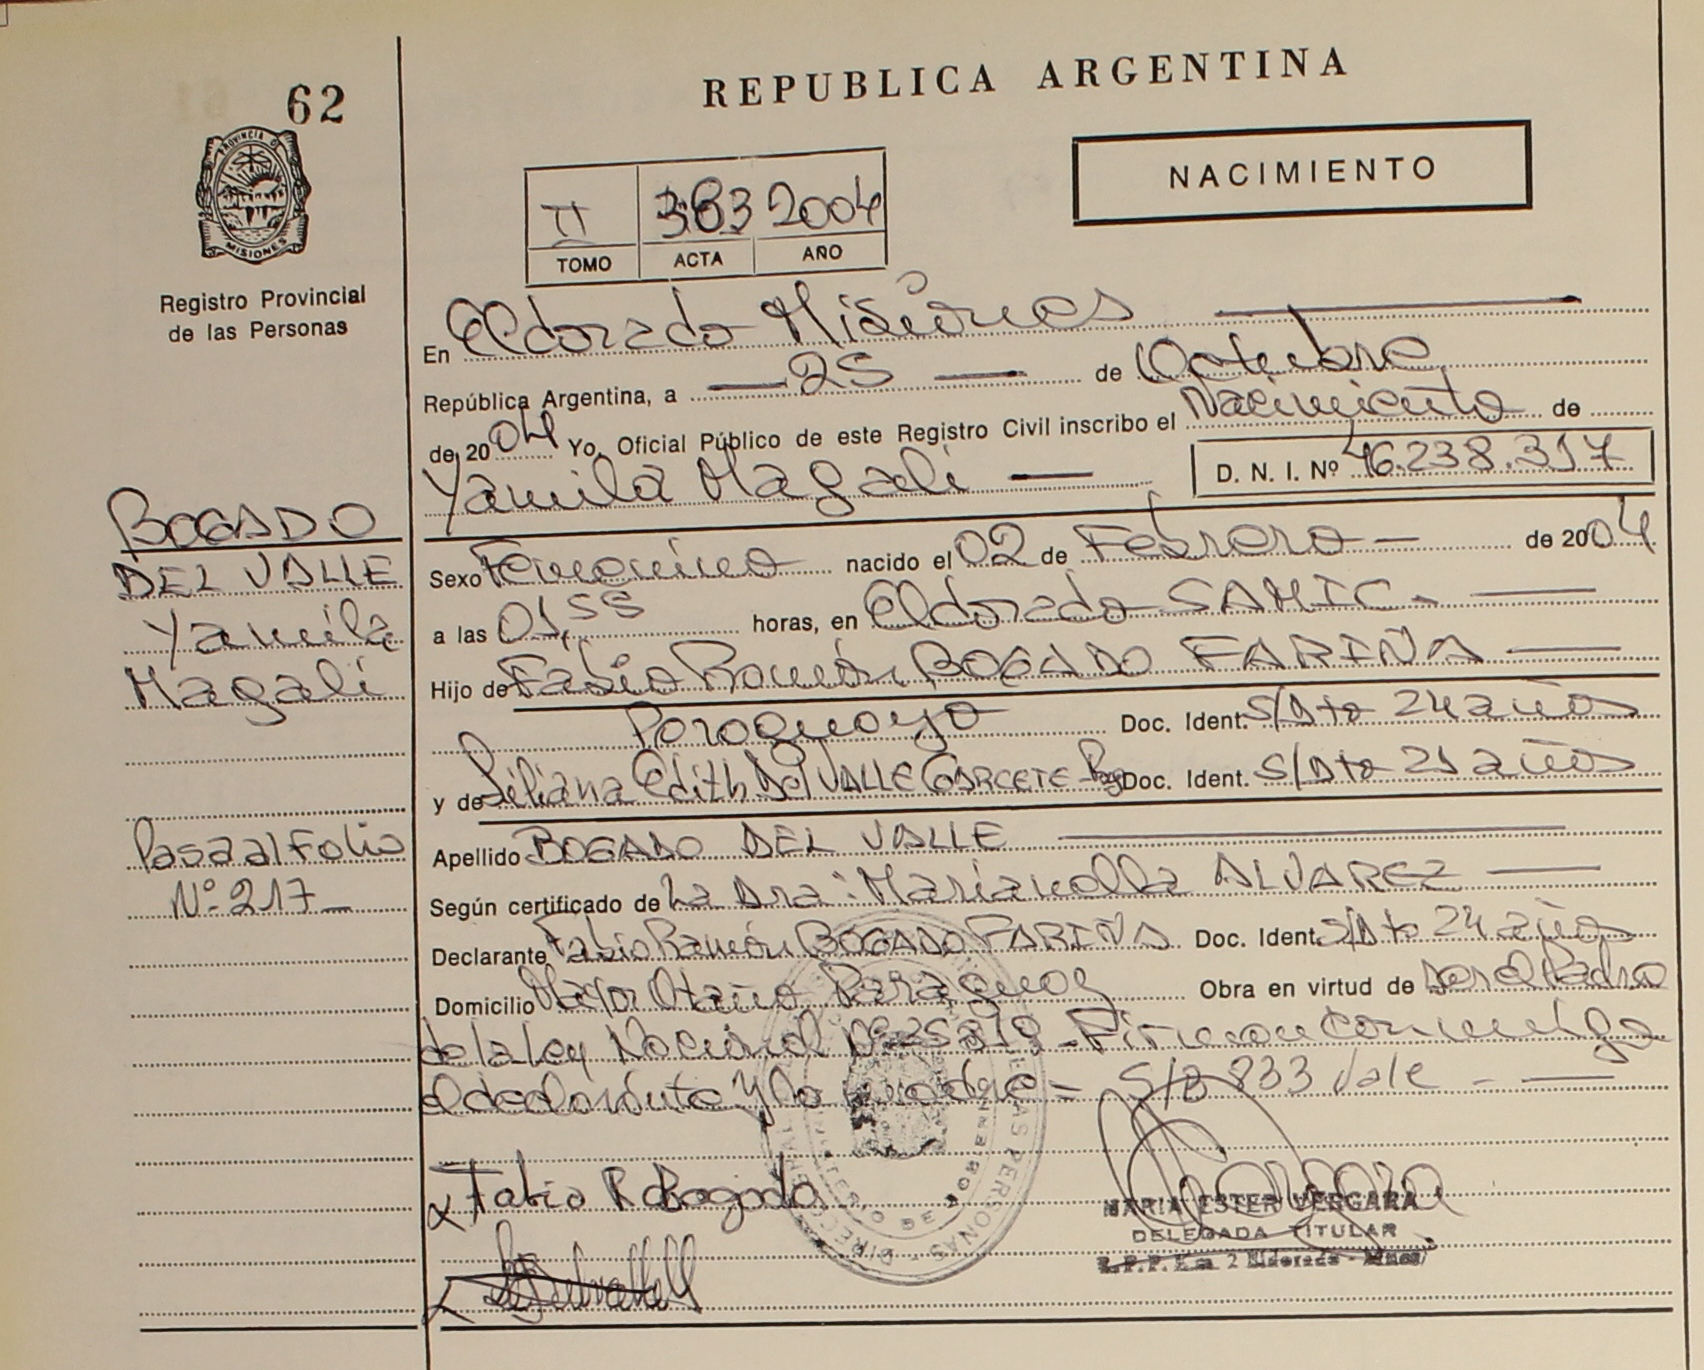 62
REPUBLICA ARGENTINA
PROVINCIA D
MISIONES
Registro Provincial
de las Personas
NACIMIENTO
II 383 2004
TOMO ACTA AÑO
En Eldorado Misiones
República Argentina, a 25 de Octubre
de 2004 Yo, Oficial Público de este Registro Civil inscribo el Nacimiento de
Yamila Magali D. N. I. Nº 46.238.317
BOGADO
DEL VALLE
Yamila
Magali
Sexo Femenino nacido el 02 de Febrero de 2004
a las 01,55 horas, en Eldorado SAMIC.
Hijo de Fabio Ramón BOGADO FARIÑA
Paraguayo Doc. Ident. S/Dto 24 años
y de Liliana Edith DEL VALLE GARCETE Pgy Doc. Ident. S/Dto 21 años
Pasa al Folio
Nº 217
Apellido BOGADO DEL VALLE
Según certificado de La Dra: Marianella ALVAREZ
Declarante Fabio Ramón BOGADO FARIÑA Doc. Ident. S/Dto 24 años
Domicilio Mayor Otaño Paraguay Obra en virtud de ser el Padre
de la Ley Nacional Nº 25819 - Firman conmigo
el declarante y la madre - S/B 383 Vale -
Fabio R Bogado
MARIA ESTER VERGARA
DELEGADA TITULAR
R.P.P. Km. 2 Eldorado - Mnes/